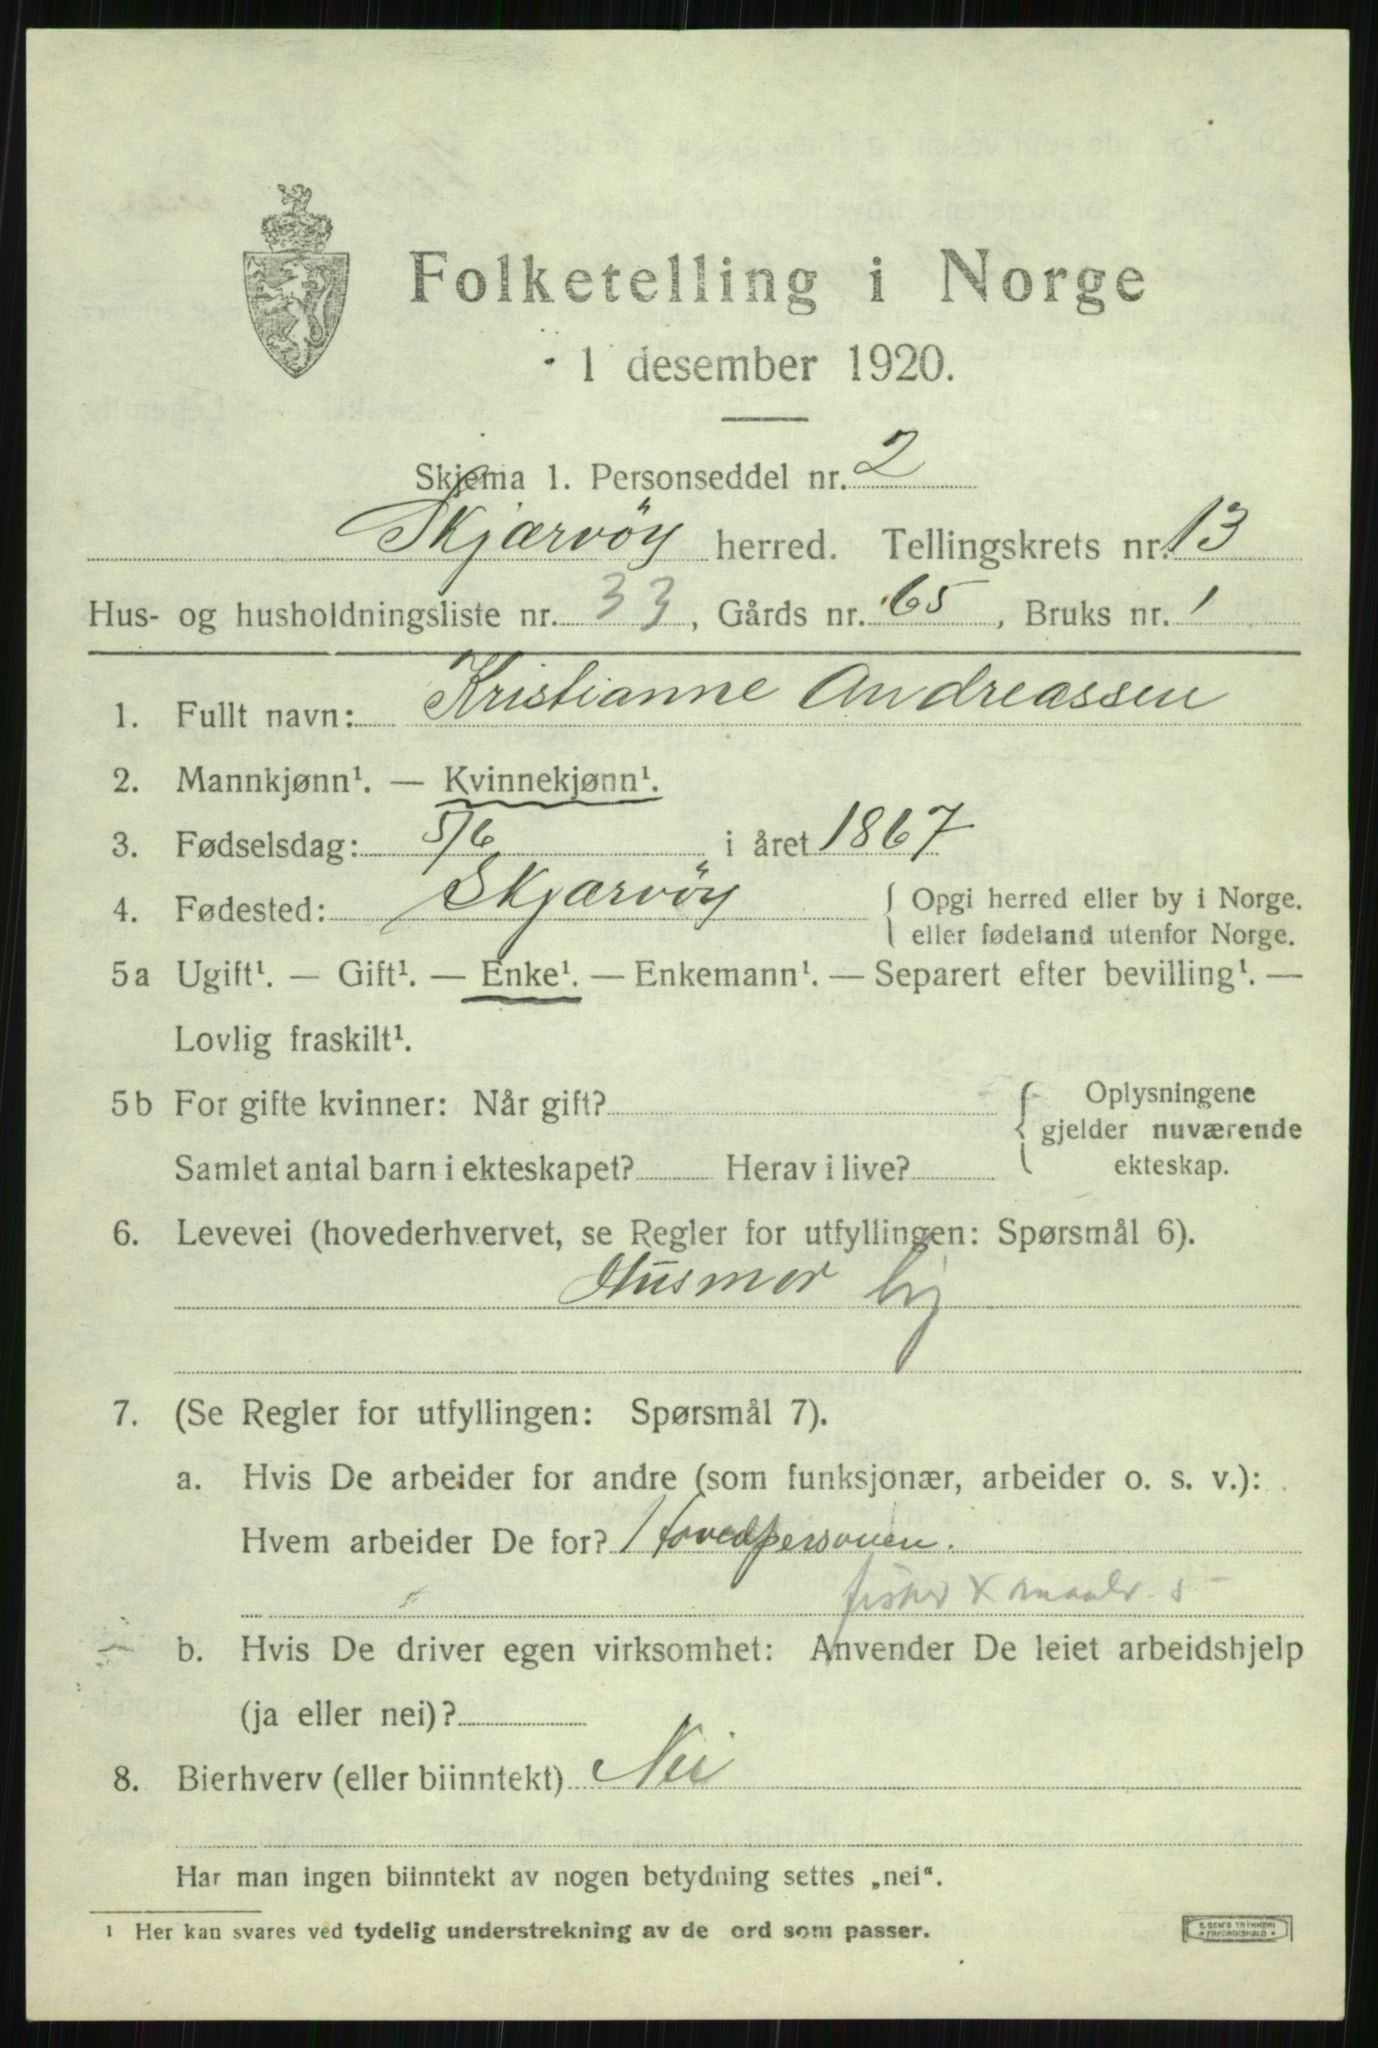 Folketelling i Norge
1 desember 1920.
Skjema 1. Personseddel nr. 2
Skjærvöy herred. Tellingskrets nr. 13
Hus- og husholdningsliste nr. 33, Gårds nr. 65, Bruks nr. 1
1. Fullt navn: Kristianne Andreassen
2. Mannkjønn¹. — Kvinnekjønn¹.
3. Fødselsdag: 5/6 i året 1867
4. Fødested: Skjærvöy { Opgi herred eller by i Norge.
eller fødeland utenfor Norge.
5a Ugift¹. — Gift¹. — Enke¹. — Enkemann¹. — Separert efter bevilling¹. —
Lovlig fraskilt¹.
5b For gifte kvinner: Når gift? { Oplysningene
gjelder nuværende
Samlet antal barn i ekteskapet? Herav i live? ekteskap.
6. Levevei (hovederhvervet, se Regler for utfyllingen: Spørsmål 6).
Husmor
7. (Se Regler for utfyllingen: Spørsmål 7).
a. Hvis De arbeider for andre (som funksjonær, arbeider o. s. v.):
Hvem arbeider De for? Hovedpersonen.
fisker x
b. Hvis De driver egen virksomhet: Anvender De leiet arbeidshjelp
(ja eller nei)?
8. Bierhverv (eller biinntekt) Nei
Har man ingen biinntekt av nogen betydning settes „nei“.
¹ Her kan svares ved tydelig understrekning av de ord som passer.